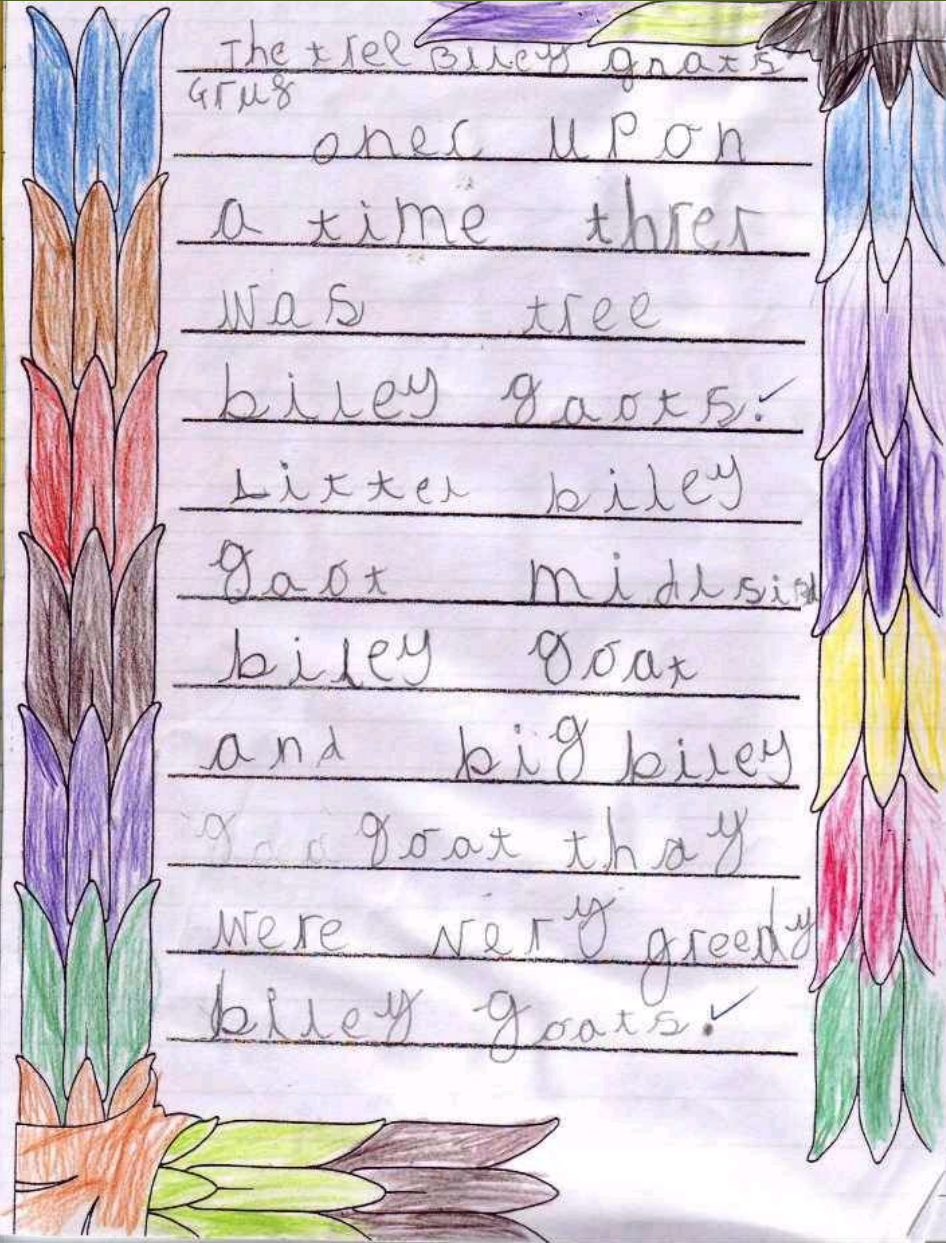 The tree Biley goats
Gruf
onec upon
a time threr
was tree
biley gaots.
Litter biley
gaot midlsised
biley goat
and big biley
goo goat thay
were very greedy
biley goats.